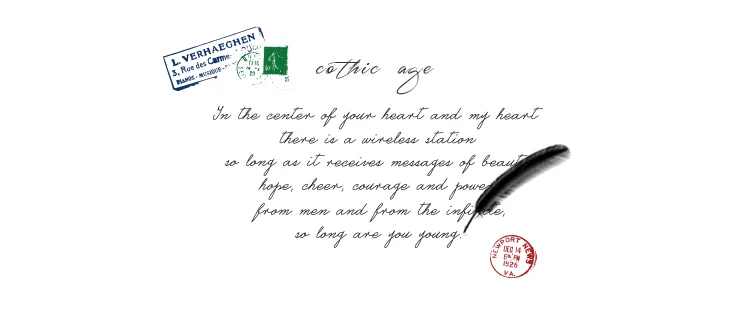 L. VERHAEGHEN
3, Rue des Carmes
PIANOS - MUSIQUE
cothic age
In the center of your heart and my heart
there is a wireless station
so long as it receives messages of beauty
hope, cheer, courage and power
from men and from the infinite,
so long are you young.
NEWPORT NEWS
DEC 14
6 PM
1926
VA.